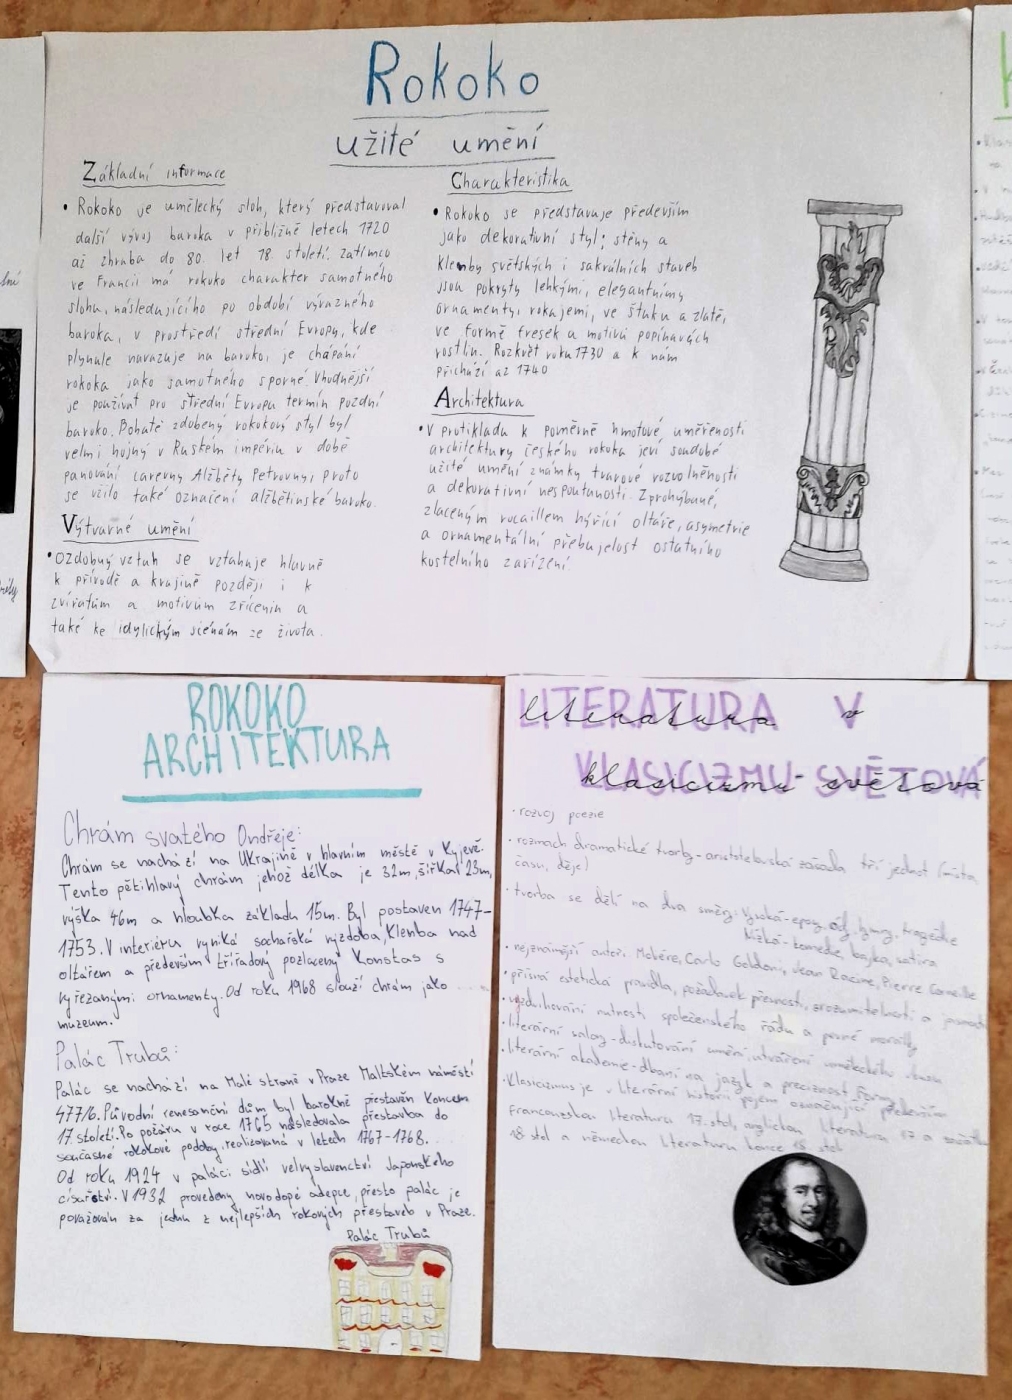 Rokoko
užité umění
Základní informace
• Rokoko je umělecký sloh, který představoval
další vývoj baroka v přibližně letech 1720
až zhruba do 80. let 18. století. Zatímco
ve Francii má rokoko charakter samotného
slohu, následujícího po období výrazného
baroka, v prostředí střední Evropy, kde
plynule navazuje na baroko, je chápání
rokoka jako samotného sporné. Vhodnější
je používat pro střední Evropu termín pozdní
baroko. Bohatě zdobený rokokový styl byl
velmi hojný v Ruském impériu v době
panování carevny Alžběty Petrovny, proto
se vžilo také označení alžbětinské baroko.
Výtvarné umění
• Ozdobný vztah se vztahuje hlavně
k přírodě a krajině později i k
zvířatům a motivům zřícenin a
také ke idylickým scénám ze života.
Charakteristika
• Rokoko se představuje především
jako dekorativní styl; stěny a
klenby světských i sakrálních staveb
jsou pokryty lehkými, elegantními
ornamenty, rokajemi, ve štuku a zlatě,
ve formě fresek a motivů popínavých
rostlin. Rozkvět roku 1730 a k nám
přichází až 1740
Architektura
• V protikladu k poměrně hmotové uměřenosti
architektury českého rokoka jeví soudobé
užité umění známky tvarové rozvolněnosti
a dekorativní nespoutanosti. Zprohýbané,
zlaceným rocaillem hýřící oltáře, asymetrie
a ornamentální přebujelost ostatního
kostelního zařízení.
ROKOKO
ARCHITEKTURA
Chrám svatého Ondřeje:
Chrám se nachází na Ukrajině v hlavním městě v Kyjevě.
Tento pětihlavý chrám jehož délka je 32m, šířka 23m,
výška 46m a hloubka základů 15m. Byl postaven 1747-
1753. V interiéru vyniká sochařská výzdoba, klenba nad
oltářem a především třířadový pozlacený konstas s
vyřezanými ornamenty. Od roku 1968 slouží chrám jako
muzeum.
Palác Trubů:
Palác se nachází na Malé straně v Praze Maltském náměstí
477/6. Původní renesanční dům byl barokně přestavěn koncem
17. století. Po požáru v roce 1765 následovala přestavba do
současné rokokové podoby, realizovaná v letech 1767-1768.
Od roku 1924 v paláci sídlí velvyslanectví Japonského
císařství. V 1932 provedeny novodopé adepce, přesto palác je
považován za jednu z nejlepších rokových přestaveb v Praze.
Palác Trubů
LITERATURA V
literatura v
KLASICIZMU-SVĚTOVÁ
klasicizmu světová
• rozvoj poezie
• rozmach dramatické tvorby-aristotelovská zásada tří jednot (místa,
času, děje)
• tvorba se dělí na dva směry: Vysoká-epos, ód, hymny, tragédie
Nízká-komedie, bajka, satira
• nejznámější autoři: Moliére, Carlo Goldoni, Jean Racine, Pierre Corneille
• přísná estetická pravidla, požadavek přesnosti, srozumitelnosti a jasnosti
• vyzdvihování nutnosti společenského řádu a pevné morálky
• literární salony-diskutování umění, utváření uměleckého vkusu
• literární akademie-dbaní na jazyk a preciznost formy
• Klasicizmus je v literární historii pojem označující především
francouzskou literaturu 17. stol, anglickou literaturu 17 a začátku
18 stol a německou literaturu konce 18 stol